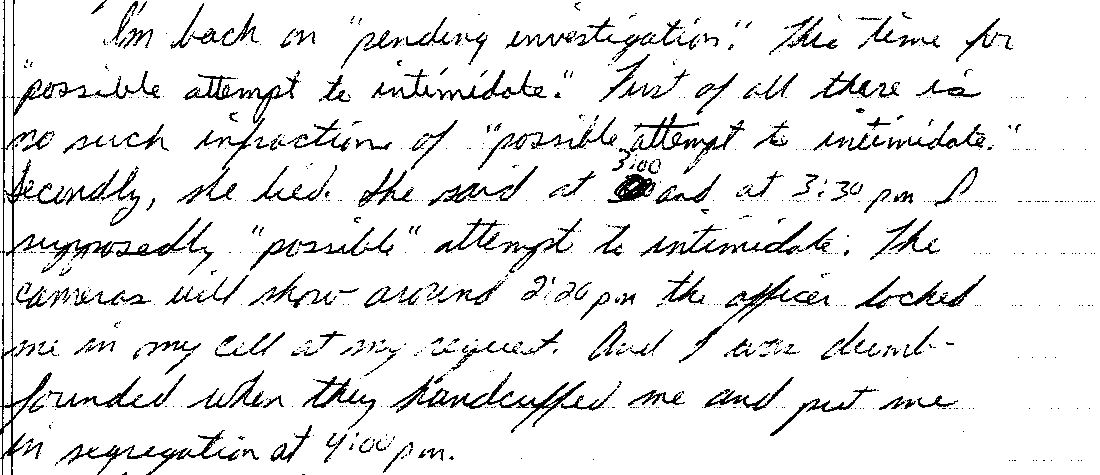 I'm back on "pending investigation." This time for
"possible attempt to intimidate." First of all there is
no such infraction of "possible attempt to intimidate."
Secondly, she lied. She said at 3:00 and at 3:30 pm I
supposedly "possible" attempt to intimidate. The
cameras will show around 2:20 pm the officer locked
me in my cell at my request. And I was dumb-
founded when they handcuffed me and put me
in segregation at 4:00 pm.